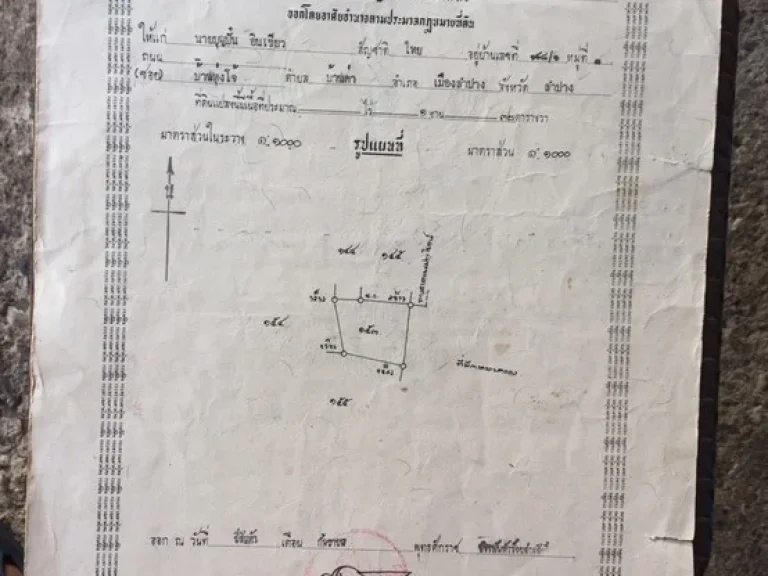 ออกโดยอาศัยอำนาจตามประมวลกฎหมายที่ดิน
ให้แก่ นายบุญปั๋น อินเขียว สัญชาติ ไทย อยู่บ้านเลขที่ ๑๘๘/๑ หมู่ที่ ๑
ถนน
(ซอย) บ้านทุ่งโจ้ ตำบล บ้านค่า อำเภอ เมืองลำปาง จังหวัด ลำปาง
ที่ดินแปลงนี้มีเนื้อที่ประมาณ ไร่ ๑ งาน ๓๒ ตารางวา
มาตราส่วนในระวาง ๑:๑๐๐๐ รูปแผนที่ มาตราส่วน ๑:๑๐๐๐
น
๑๔๔ ๑๔๕
๑๕๔ ๑๕๓
๑๕๕
ออก ณ วันที่ เดือน กันยายน พุทธศักราช